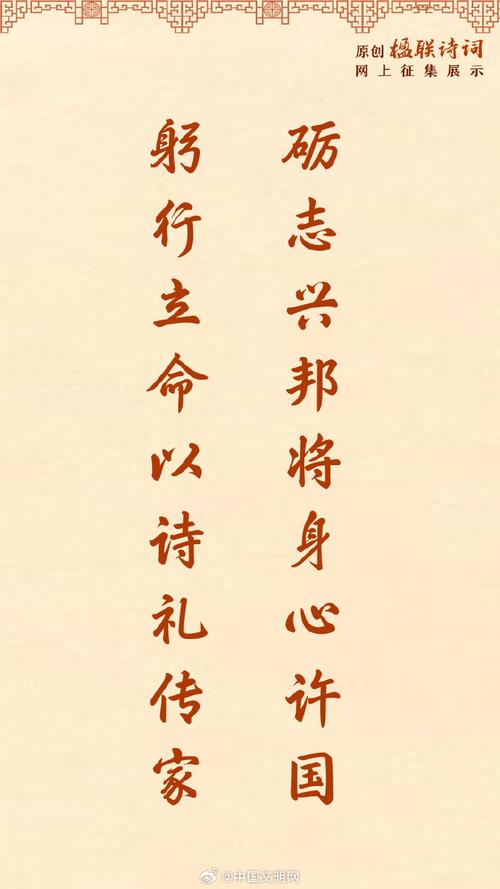 原创楹联诗词
网上征集展示
砺志兴邦将身心许国
躬行立命以诗礼传家
@中国文明网